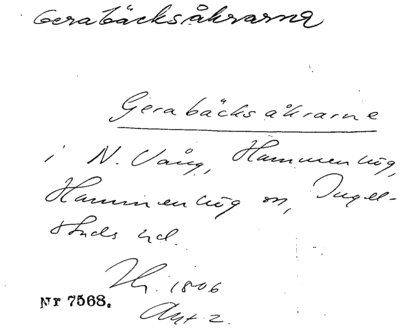 Gerabäcksåkrarna
Gerabäcksåkrarne
i N. Vång, Hammenhög,
Hammenhög sn, Ingel-
stads hd.
Lh. 1806
Akt 2.
Nr 7568.